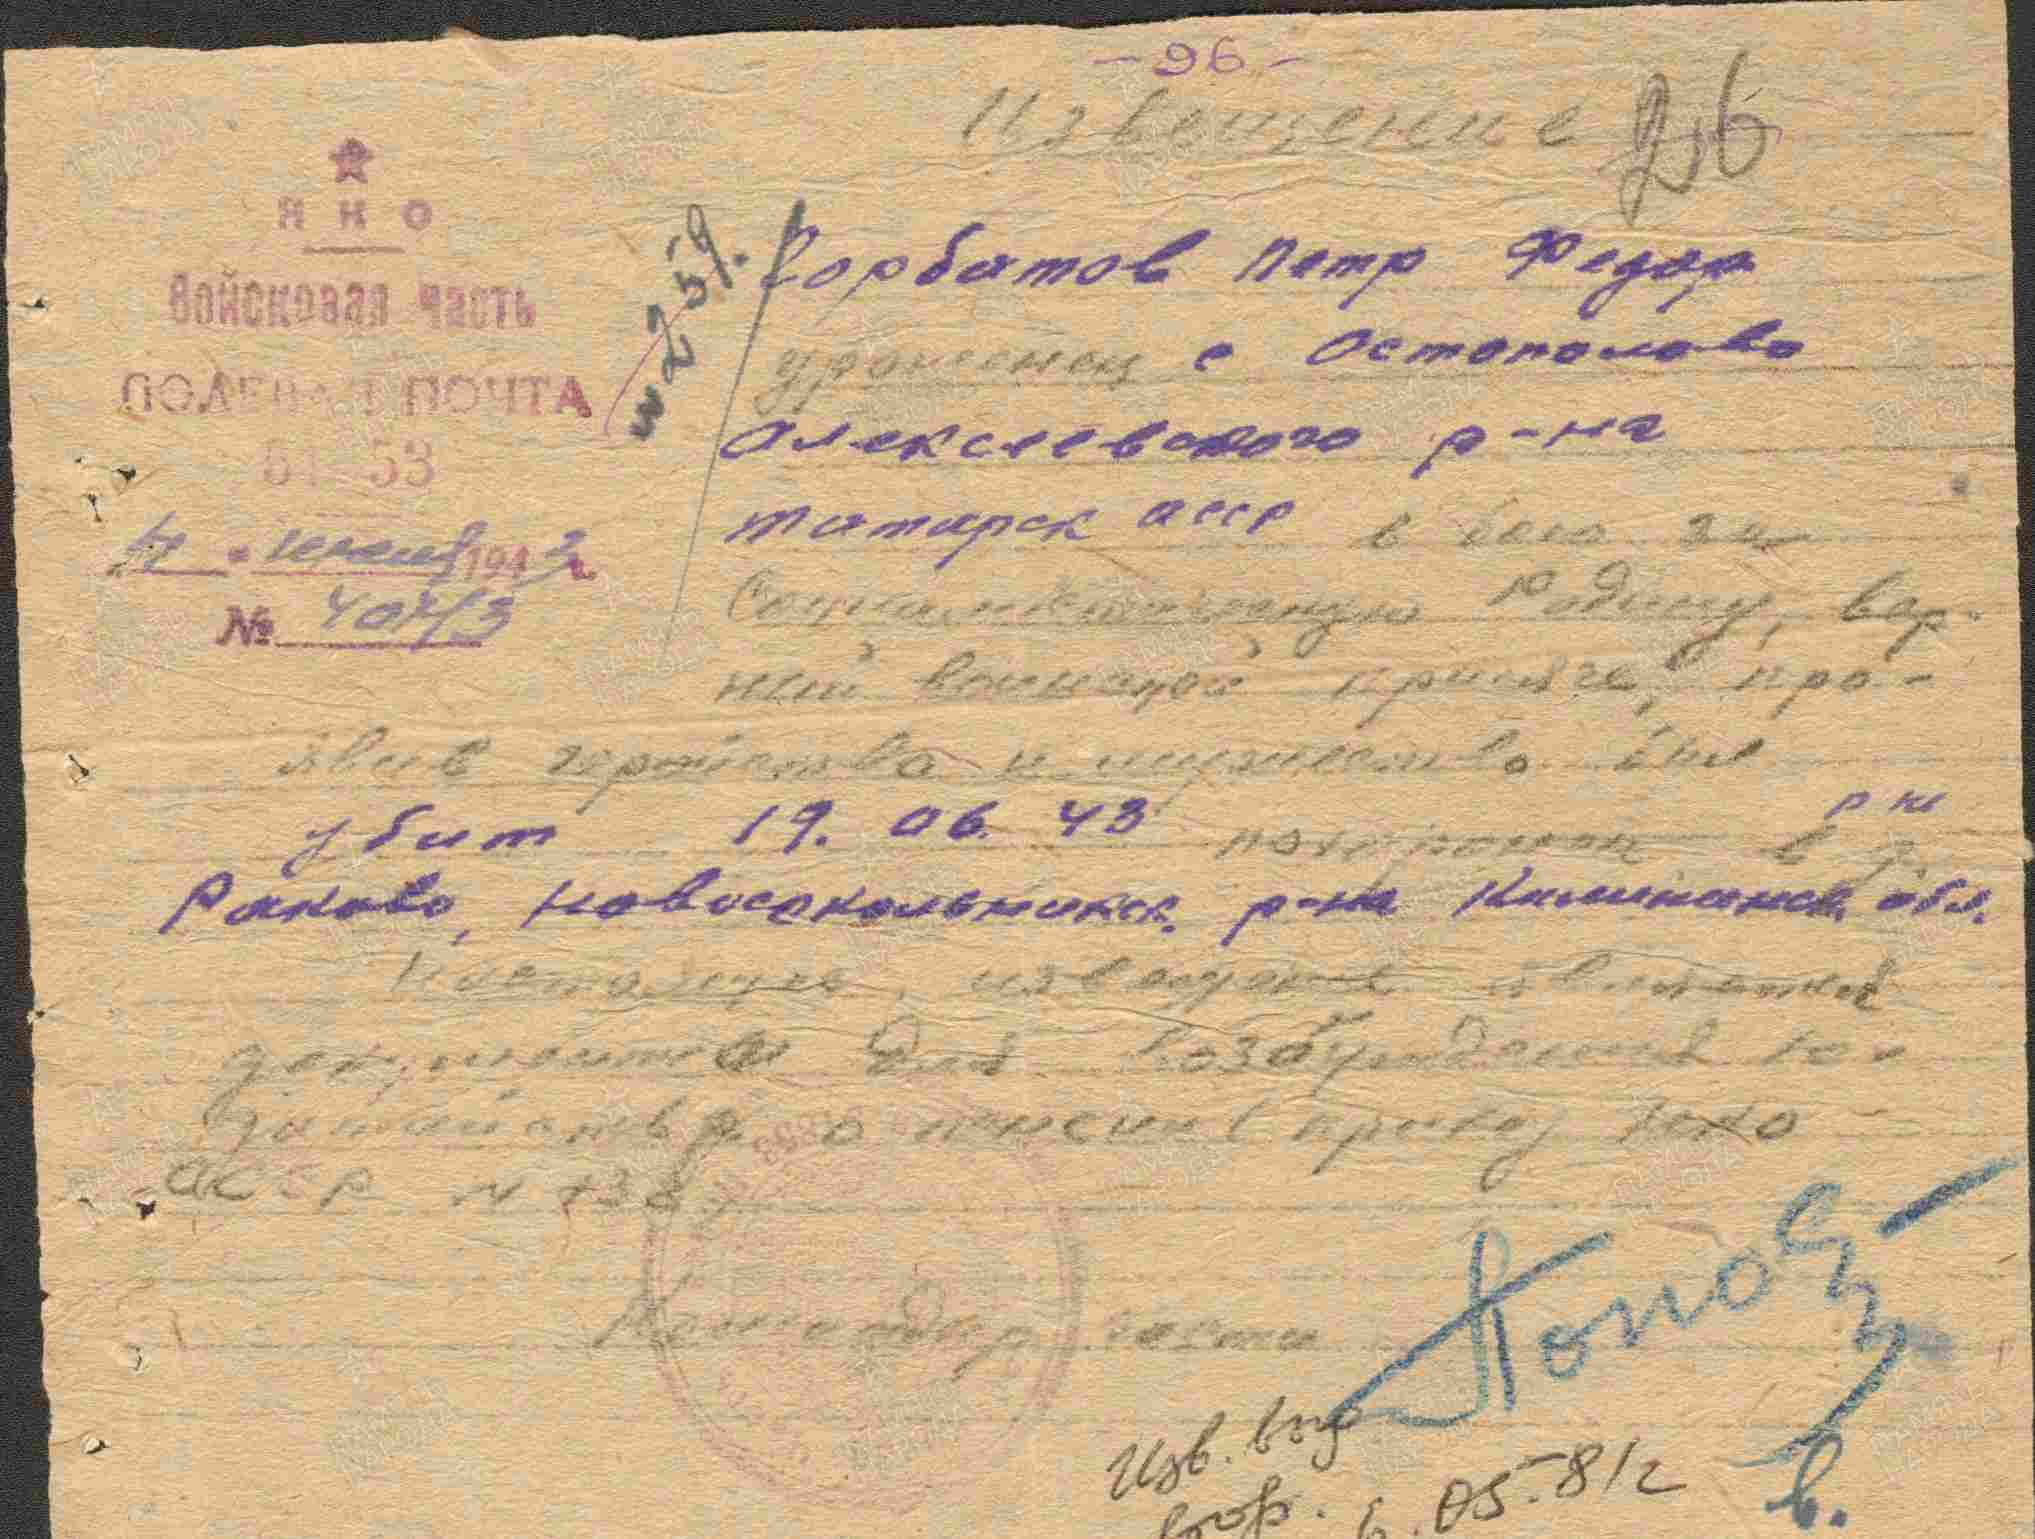 - 96 -
Извещение
НКО
Войсковая часть
ПОЛЕВАЯ ПОЧТА
61-53
194 3 г.
№ 404/3
Горбатов Петр Федор
уроженец с Остополово
Алексеевского р-на
Татарск АССР в бою за
Социалистическую Родину, вер-
ный воинской присяге, про-
явив геройство и мужество был
убит 19.06.43 похоронен в р-не
д. Раково, Новосокольническ. р-на Калининск. обл.
Настоящее извещение является
документом для возбуждения хо-
датайства о пенсии (приказ НКО
СССР №
Командир части
Попов
Изв.
6.05.81г
в.